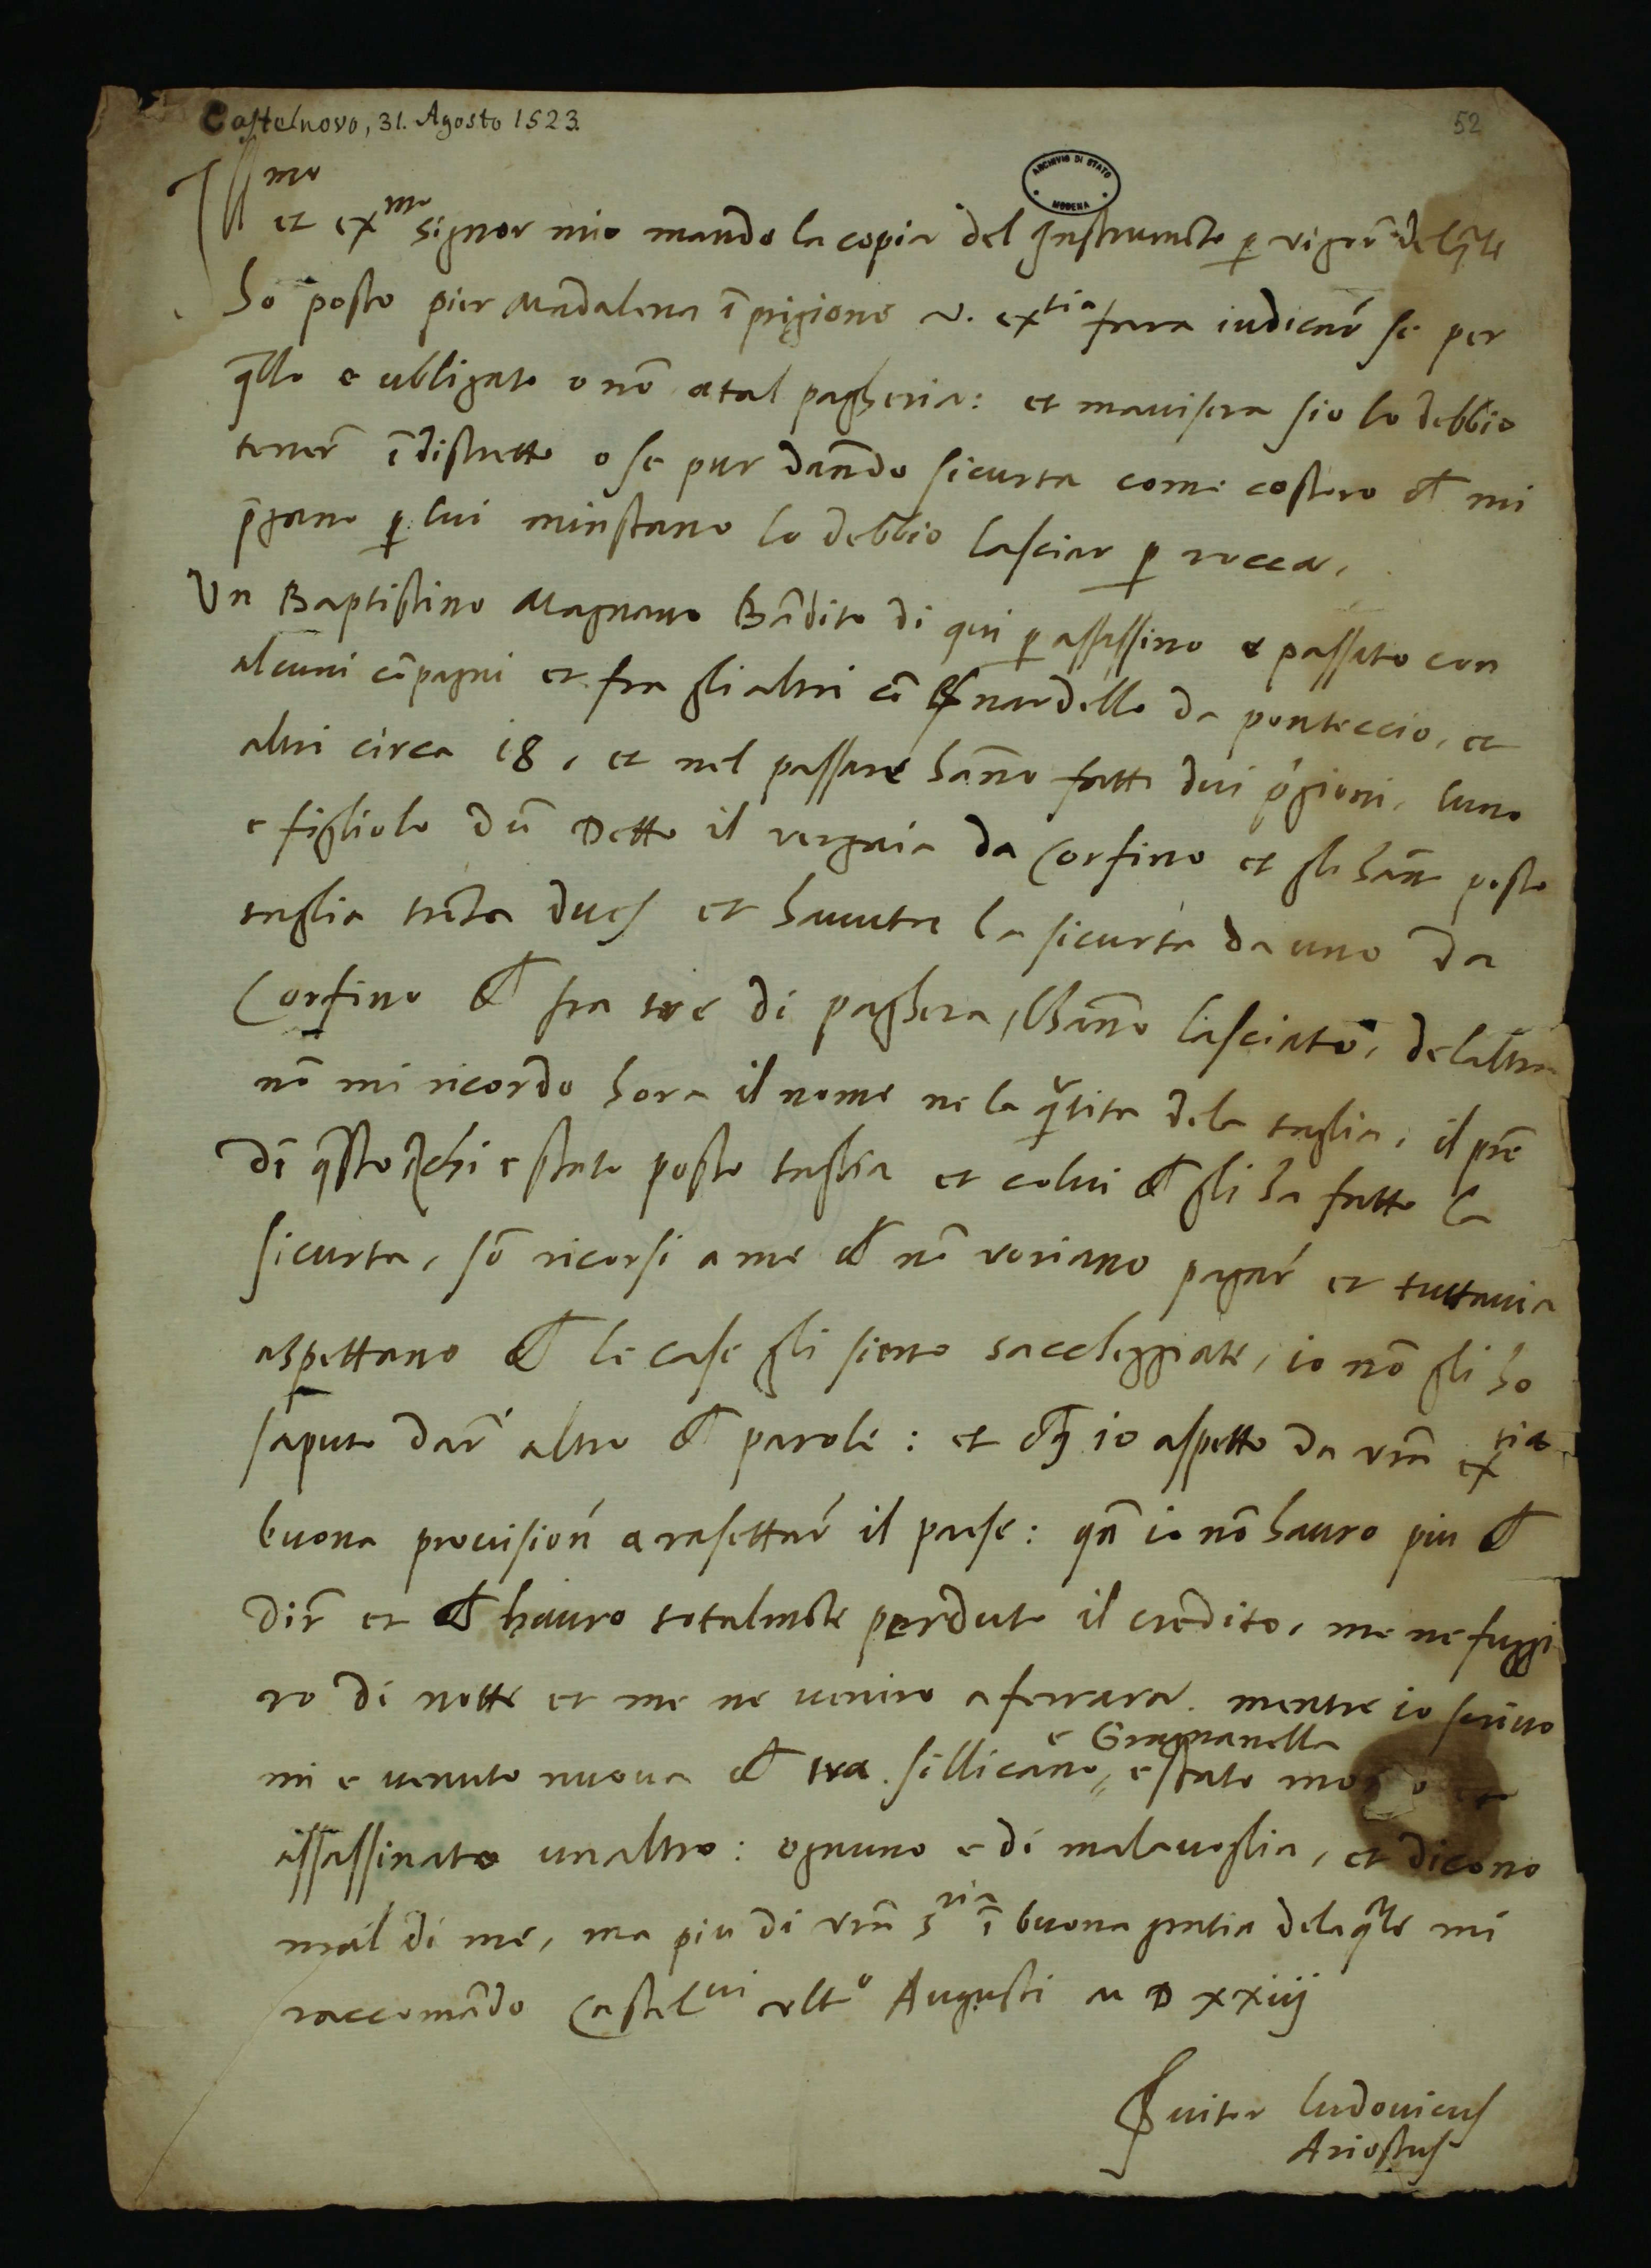 Castelnovo, 31. Agosto 1523.
52
ARCHIVIO DI STATO
MODENA
Ill mo
et ex.mo signor mio mando la copia del Instrumēto p̱ vigor̄ del q̄le
ho posto pier Madalena ī prigione v. ex.tia fara iudicar̄ se per
q̄llo e ubligato o nō a tal pagheria: et mauisera sio lo debbio
tener̄ ī distretto o se pur dando sicurta come costoro ch̄ mi
p̄gano p̱ lui minstano lo debbio lasciar p̱ rocca.
Un Baptistino Magnano Bādito di qui p̱ assassino e passato con
alcuni cōpagni et fra gli altri cō B̄nardello da ponteccio, et
altri circa 18, et nel passare hāno fatti dui p̄gioni, luno
e figliolo dū Detto il vergaia da Corfino et gli hāno posto
taglia trēta duc. et havuta la sicurta da uno da
Corfino ch̄ fra tre di paghera, lhāno lasciato, de laltro
nō mi ricordo hora il nome ne la q̄tita dela taglia, il pr̄e
di q̄sto a chi e stato posto taglia et colui ch̄ gli ha fatto la
sicurta, sō ricorsi a me ch̄ nō voriano pagar̄ et tuttavia
aspettano ch̄ le case gli sieno saccheggiate, io nō gli ho
saputo dar̄ altro ch̄ parole: et ch̄ io aspetto da vr̄a ex.tia
buona provision̄ a rasettar̄ il paese: q̄n io nō havro piu ch̄
dir̄ et ch̄ havro totalmēte perduto il credito, me ne fuggi
ro di notte et me ne veniro a ferrara. mentre io scrivo
mi e venuto nuova ch̄ tra. sillicano, e Gragnanella e stato mor o et
assassinato unaltro: ognuno e di malavoglia, et dicono
mal di me, ma piu di vr̄a S.ria ī buona gratia dela q̄le mi
raccomādo Castel.vi ult.o Augusti M D xxiij
S̄vitor ludovicus
Ariostus